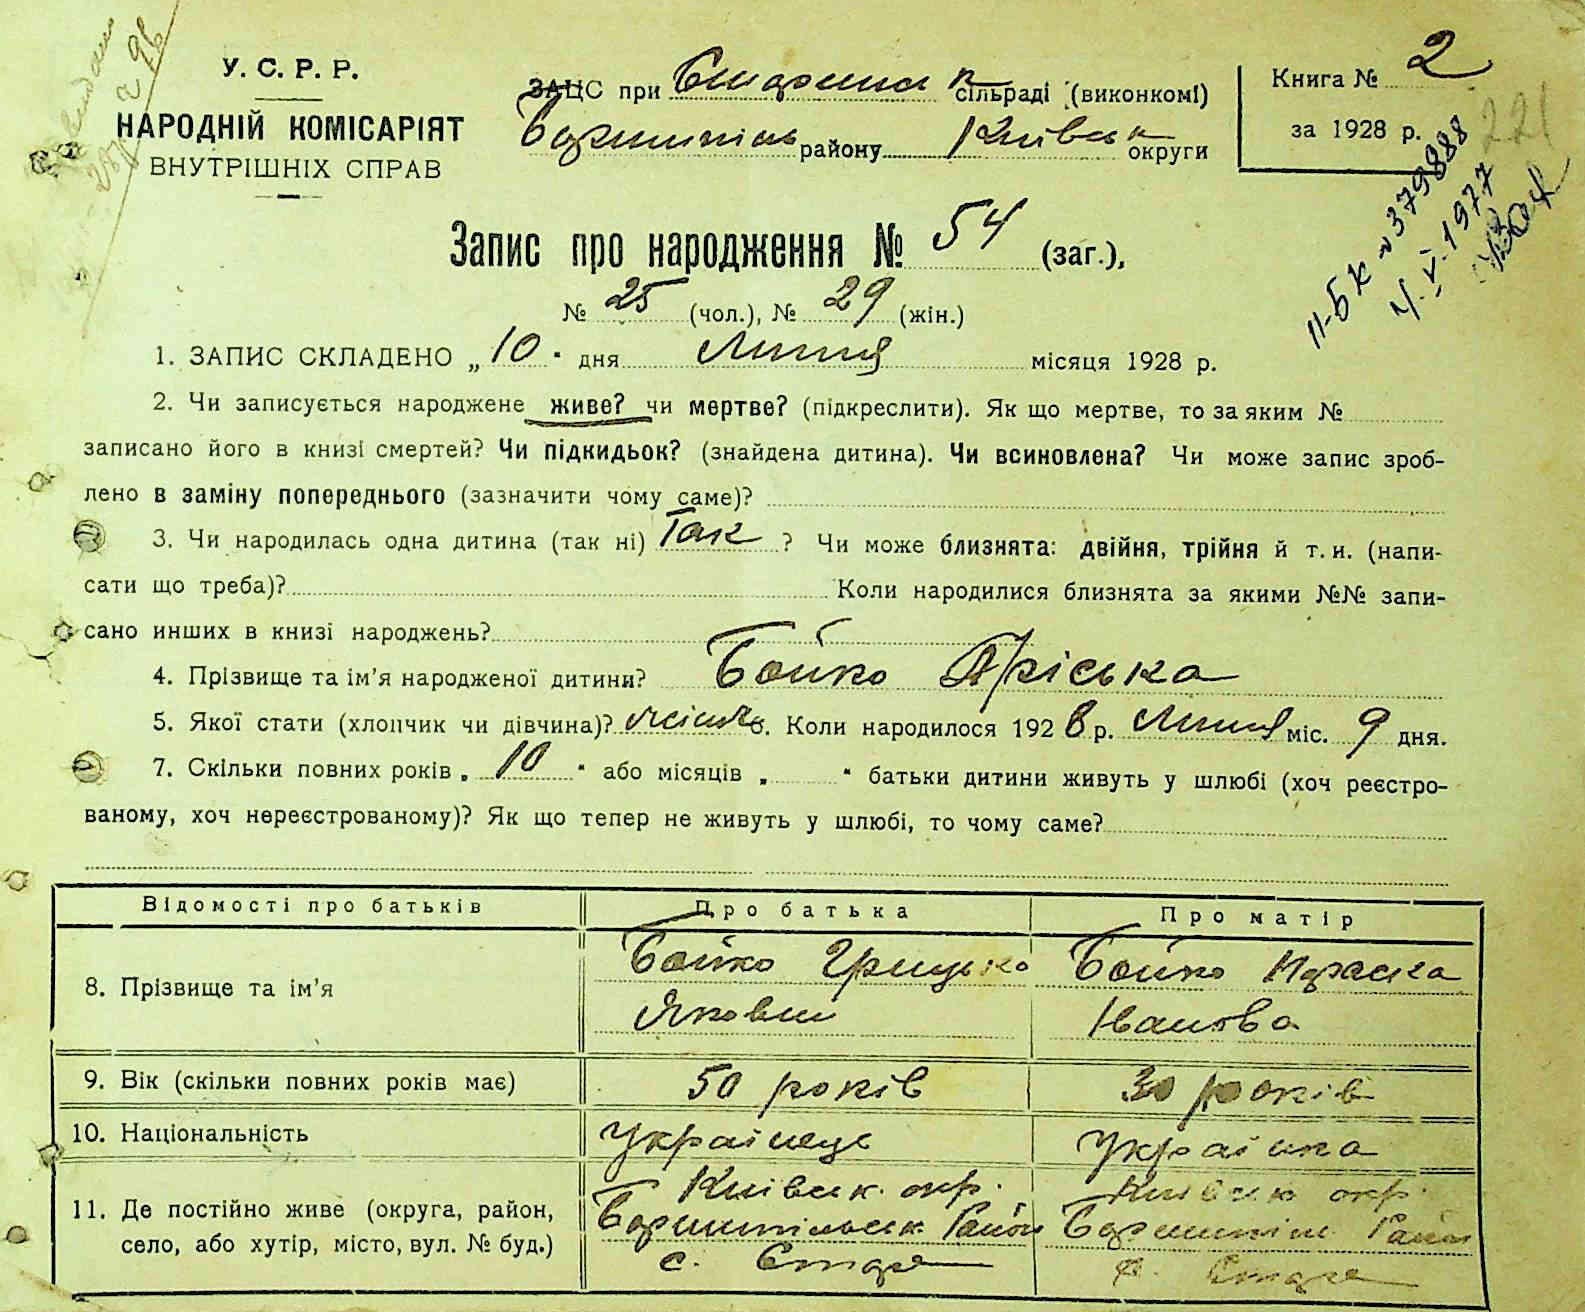 У. С. Р. Р.
НАРОДНІЙ КОМІСАРІЯТ
ВНУТРІШНІХ СПРАВ
ЗАЦС при сільраді (виконкомі)
району Київськ округи
Книга № 2
за 1928 р.
221
11-БК № 379888
4.V.1977
Запис про народження № 54 (заг.),
№ 25 (чол.), № 29 (жін.)
1. ЗАПИС СКЛАДЕНО „ 10 " дня Липня місяця 1928 р.
2. Чи записується народжене живе? чи мертве? (підкреслити). Як що мертве, то за яким №
записано його в книзі смертей? Чи підкидьок? (знайдена дитина). Чи всиновлена? Чи може запис зроб-
лено в заміну попереднього (зазначити чому саме)?
3. Чи народилась одна дитина (так ні) Так ? Чи може близнята: двійня, трійня й т. и. (напи-
сати що треба)? Коли народилися близнята за якими №№ запи-
сано инших в книзі народжень?
4. Прізвище та ім'я народженої дитини? Бойко Пріська
5. Якої стати (хлопчик чи дівчина)? 6. Коли народилося 1928 р. Липня міс. 9 дня.
7. Скільки повних років „ 10 " або місяців „ " батьки дитини живуть у шлюбі (хоч реєстро-
ваному, хоч нереєстрованому)? Як що тепер не живуть у шлюбі, то чому саме?
Відомості про батьків Про батька Про матір
8. Прізвище та ім'я Бойко Грицько Бойко Параска
Яковш Іванова
9. Вік (скільки повних років має) 50 років 30 років
10. Національність Українець Українка
11. Де постійно живе (округа, район, село, або хутір, місто, вул. № буд.) Київськ. окр. Київськ окр.
Боришпільськ. Район Боришпіль Район
с. Старе с. Старе